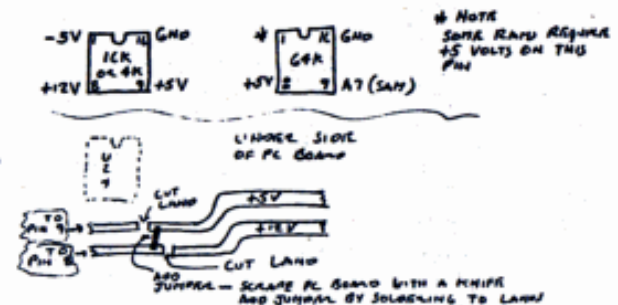 -5V 1 16 GND
16K
OR 4K
+12V 8 9 +5V
* 1 16 GND
64K
+5V 8 9 A7 (SAM)
* NOTE
SOME RAMS REQUIRE
+5 VOLTS ON THIS
PIN
UNDER SIDE
OF PC BOARD
U
2
9
CUT
LAND
+5V
TO
PIN 9
+12V
TO
PIN 8
CUT LAND
ADD
JUMPER — SCRAPE PC BOARD WITH A KNIFE
ADD JUMPER BY SOLDERING TO LANDS